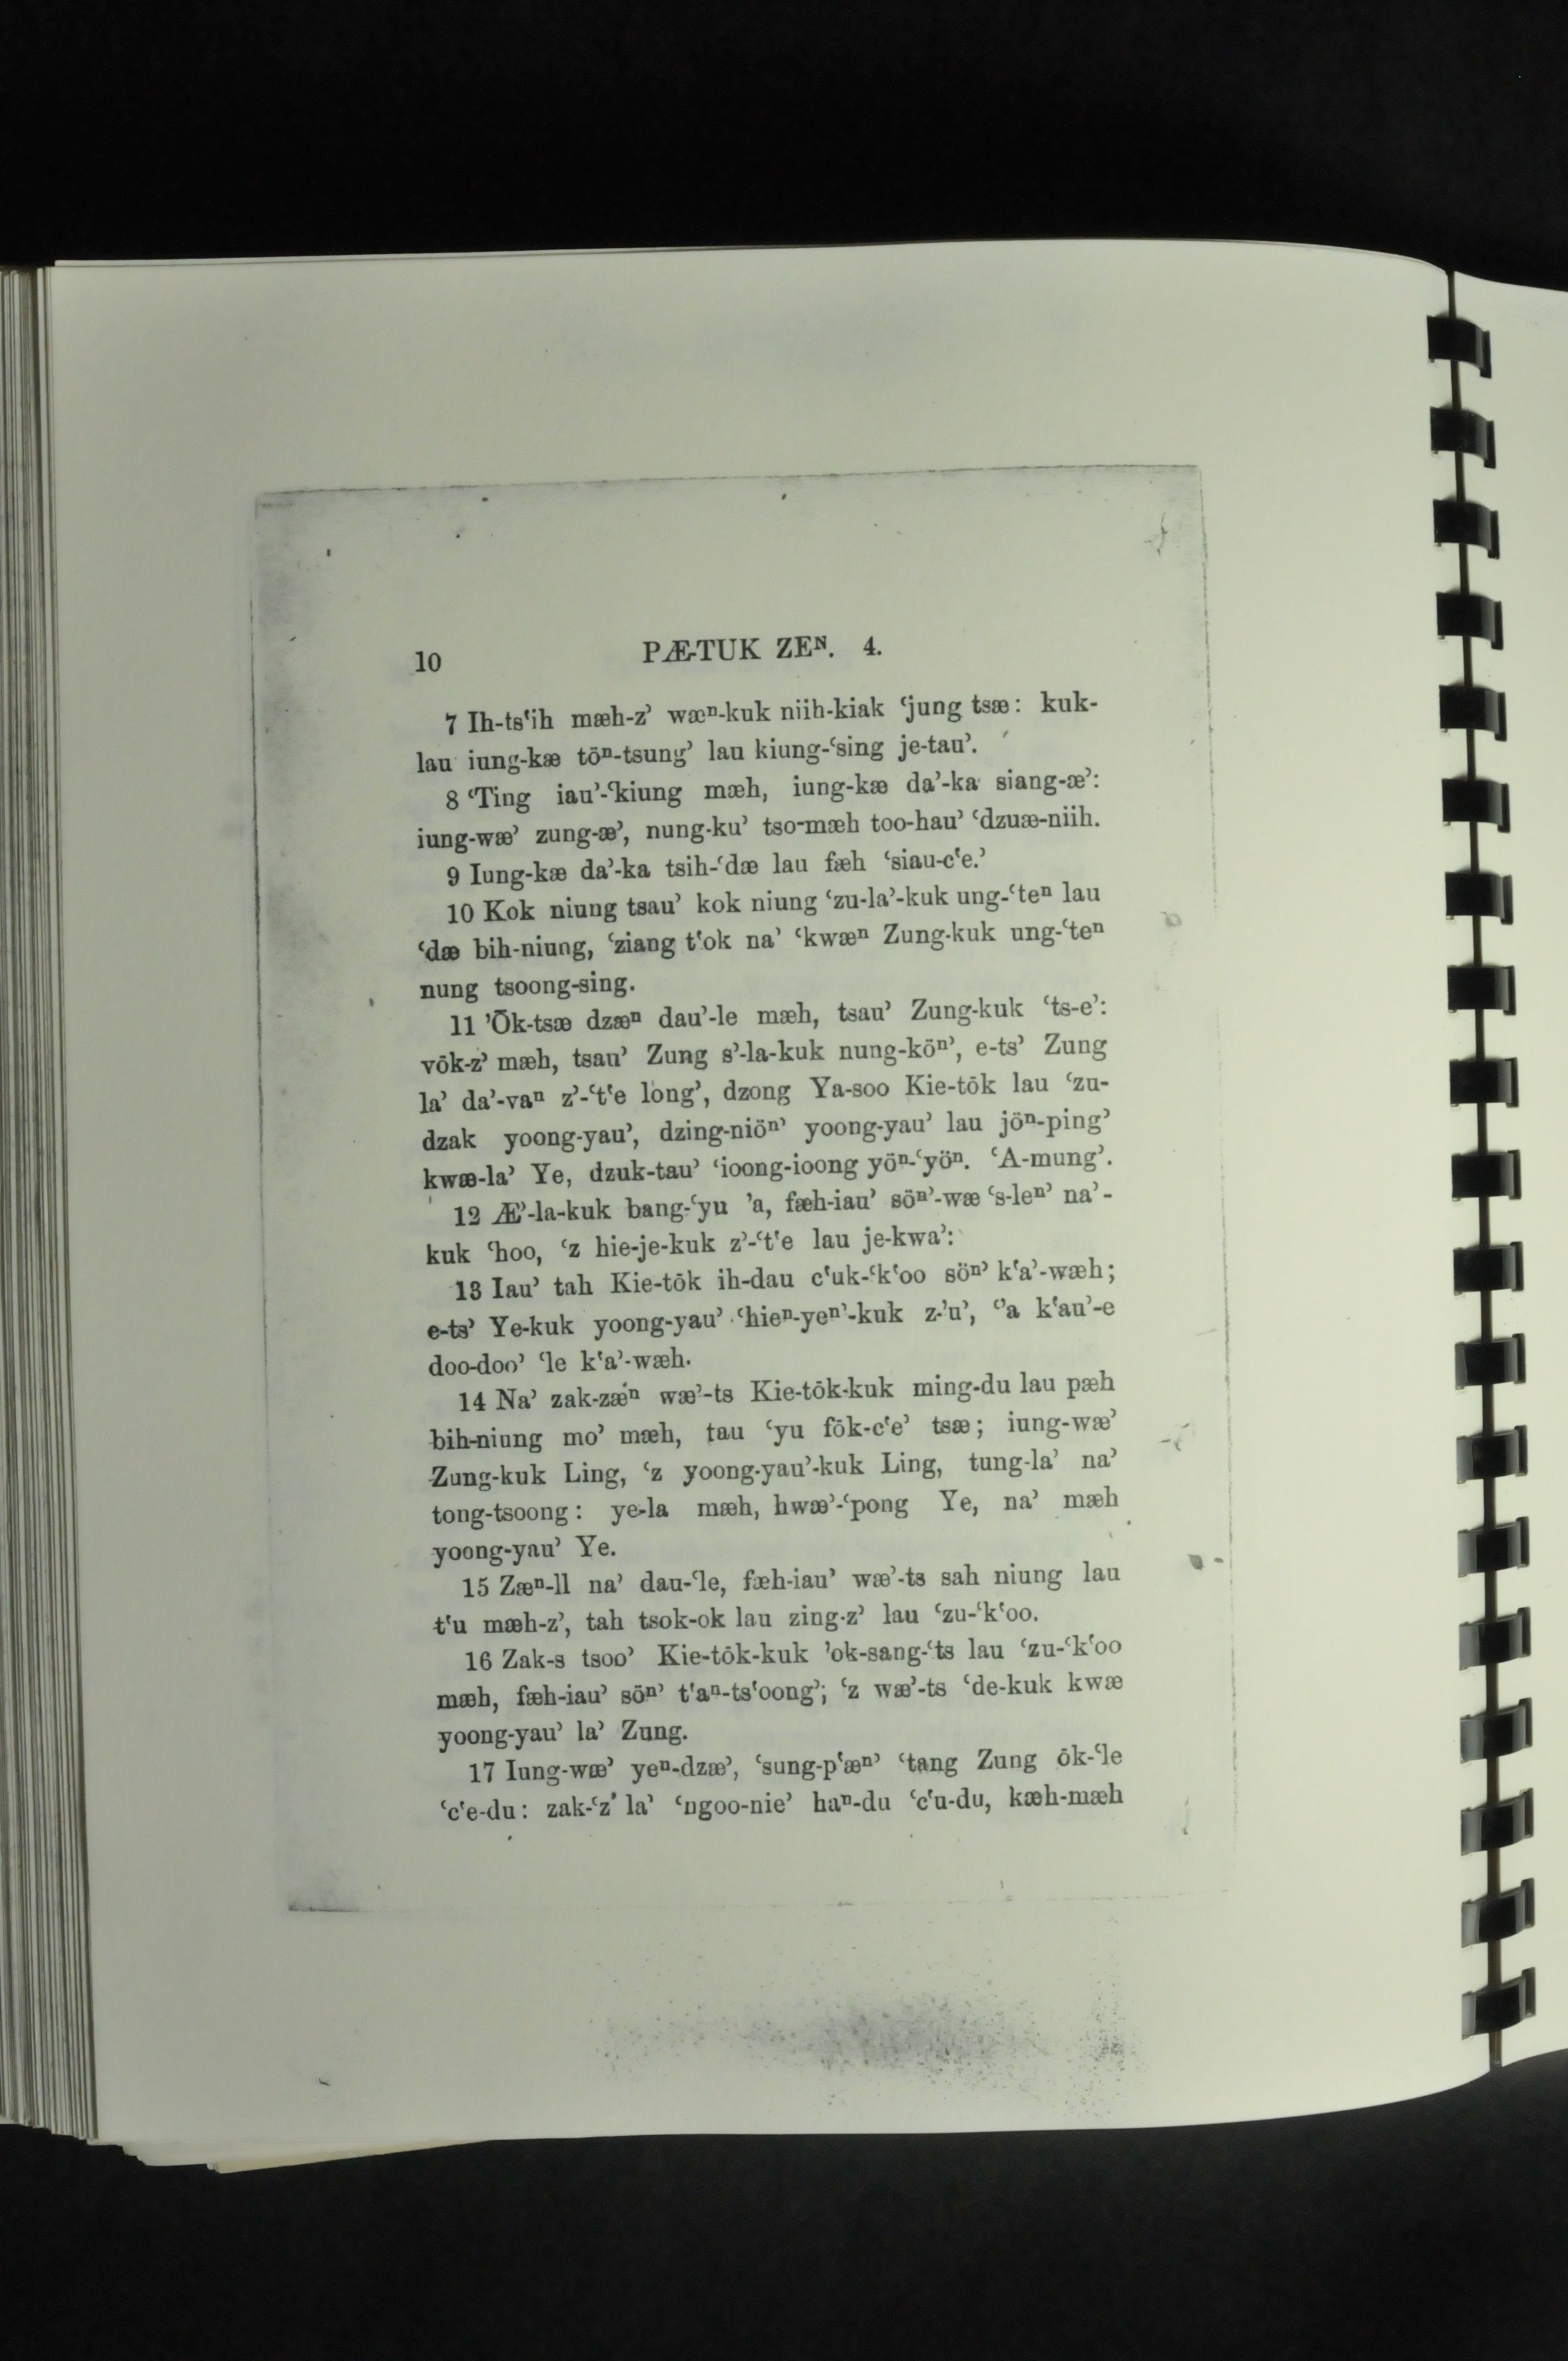 10 PÆ-TUK ZEᴺ. 4.
7 Ih-ts‘ih mæh-z’ wæⁿ-kuk niih-kiak ‘jung tsæ: kuk-
lau iung-kæ töⁿ-tsung’ lau kiung-‘sing je-tau’.
8 ‘Ting iau’-‘kiung mæh, iung-kæ da’-ka siang-æ’:
iung-wæ’ zung-æ’, nung-ku’ tso-mæh too-hau’ ‘dzuæ-niih.
9 Iung-kæ da’-ka tsih-‘dæ lau fæh ‘siau-c‘e.’
10 Kok niung tsau’ kok niung ‘zu-la’-kuk ung-‘teⁿ lau
‘dæ bih-niung, ‘ziang t‘ok na’ ‘kwæⁿ Zung-kuk ung-‘teⁿ
nung tsoong-sing.
11 ’Ōk-tsæ dzæⁿ dau’-le mæh, tsau’ Zung-kuk ‘ts-e’:
vōk-z’ mæh, tsau’ Zung s’-la-kuk nung-köⁿ’, e-ts’ Zung
la’ da’-vaⁿ z’-‘t‘e long’, dzong Ya-soo Kie-tōk lau ‘zu-
dzak yoong-yau’, dzing-niöⁿ’ yoong-yau’ lau jöⁿ-ping’
kwæ-la’ Ye, dzuk-tau’ ‘ioong-ioong yöⁿ-‘yöⁿ. ‘A-mung’.
12 Æ’-la-kuk bang-‘yu ’a, fæh-iau’ söⁿ’-wæ ‘s-leⁿ’ na’-
kuk ‘hoo, ‘z hie-je-kuk z’-‘t‘e lau je-kwa’:
13 Iau’ tah Kie-tōk ih-dau c‘uk-‘k‘oo söⁿ’ k‘a’-wæh;
e-ts’ Ye-kuk yoong-yau’ ‘hieⁿ-yeⁿ’-kuk z-’u’, ‘’a k‘au’-e
doo-doo’ ‘le k‘a’-wæh.
14 Na’ zak-zæⁿ wæ’-ts Kie-tōk-kuk ming-du lau pæh
bih-niung mo’ mæh, tau ‘yu fōk-c‘e’ tsæ; iung-wæ’
Zung-kuk Ling, ‘z yoong-yau’-kuk Ling, tung-la’ na’
tong-tsoong: ye-la mæh, hwæ’-‘pong Ye, na’ mæh
yoong-yau’ Ye.
15 Zæⁿ-ll na’ dau-‘le, fæh-iau’ wæ’-ts sah niung lau
t‘u mæh-z’, tah tsok-ok lau zing-z’ lau ‘zu-‘k‘oo.
16 Zak-s tsoo’ Kie-tōk-kuk ’ok-sang-‘ts lau ‘zu-‘k‘oo
mæh, fæh-iau’ söⁿ’ t‘aⁿ-ts‘oong’; ‘z wæ’-ts ‘de-kuk kwæ
yoong-yau’ la’ Zung.
17 Iung-wæ’ yeⁿ-dzæ’, ‘sung-p‘æⁿ’ ‘tang Zung ōk-‘le
‘c‘e-du: zak-‘z’ la’ ‘ngoo-nie’ haⁿ-du ‘c‘u-du, kæh-mæh